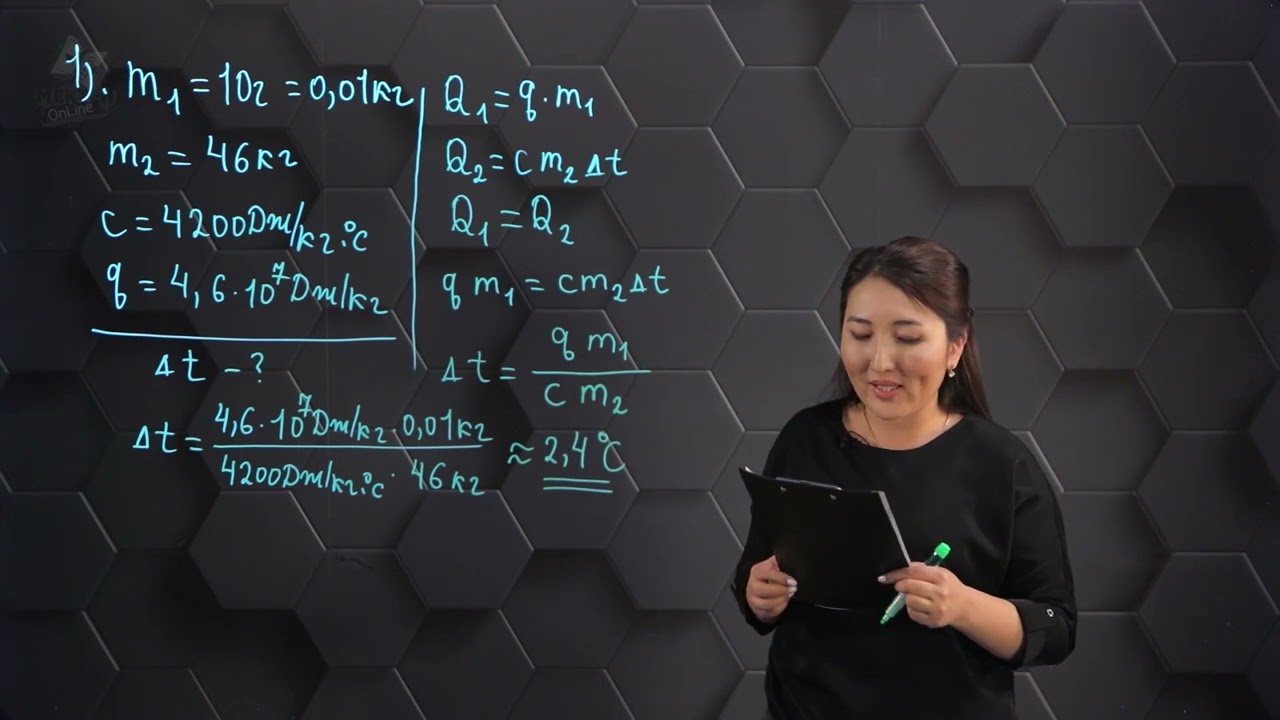 OnLine
1). m₁ = 10г = 0,01кг
m₂ = 46кг
c = 4200Dm/кг·°c
q = 4,6·10⁷Dm/кг
Δt – ?
Q₁ = q·m₁
Q₂ = c m₂ Δt
Q₁ = Q₂
q m₁ = cm₂Δt
Δt = q m₁ / c m₂
Δt = 4,6·10⁷Dm/кг·0,01кг / 4200Dm/кг·°c · 46кг ≈ 2,4°C